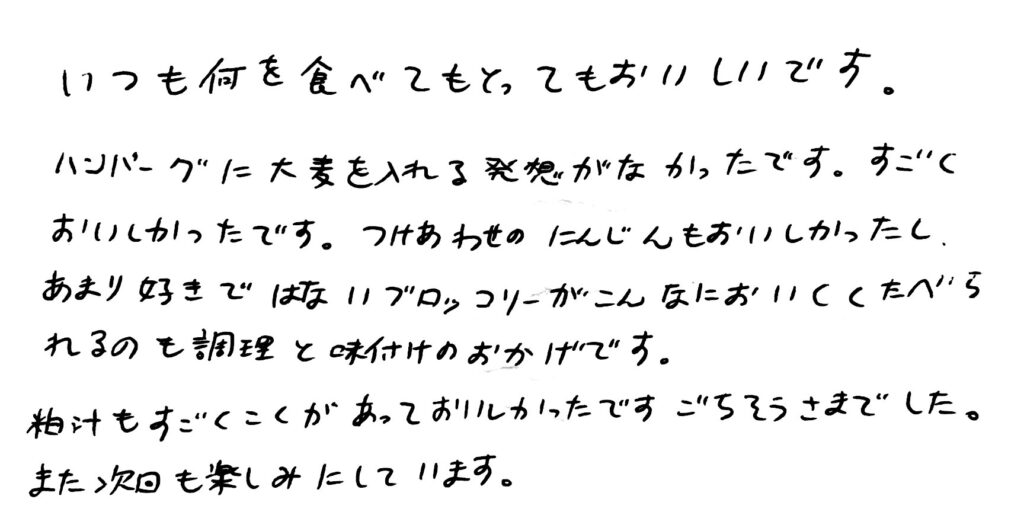 いつも何を食べてもとってもおいしいです。
ハンバーグに大麦を入れる発想がなかったです。すごく
おいしかったです。つけあわせのにんじんもおいしかったし、
あまり好きではないブロッコリーがこんなにおいくくたべら
れるのも調理と味付けのおかげです。
粕汁もすごくこくがあっておいしかったですごちそうさまでした。
また次回も楽しみにしています。